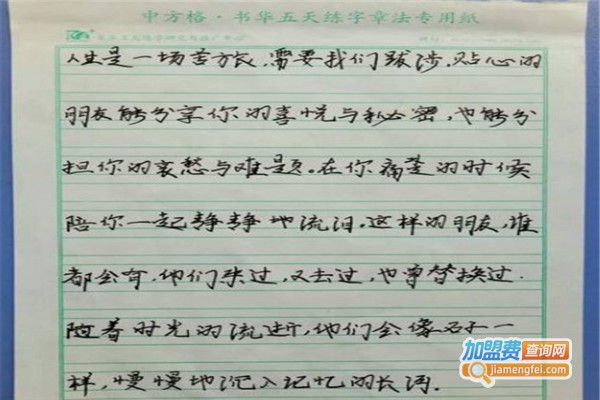 中方格·书华五天练字章法专用纸
人生是一场苦旅,需要我们跋涉.贴心的
朋友能分享你的喜悦与秘密,也能分
担你的哀愁与难题。在你痛楚的时候
陪你一起静静地流泪。这样的朋友,谁
都会有,他们来过,又去过,也曾替换过.
随着时光的流逝,他们会像石子一
样,慢慢地沉入记忆的长河.
加盟费查询网
jiamengfei.com